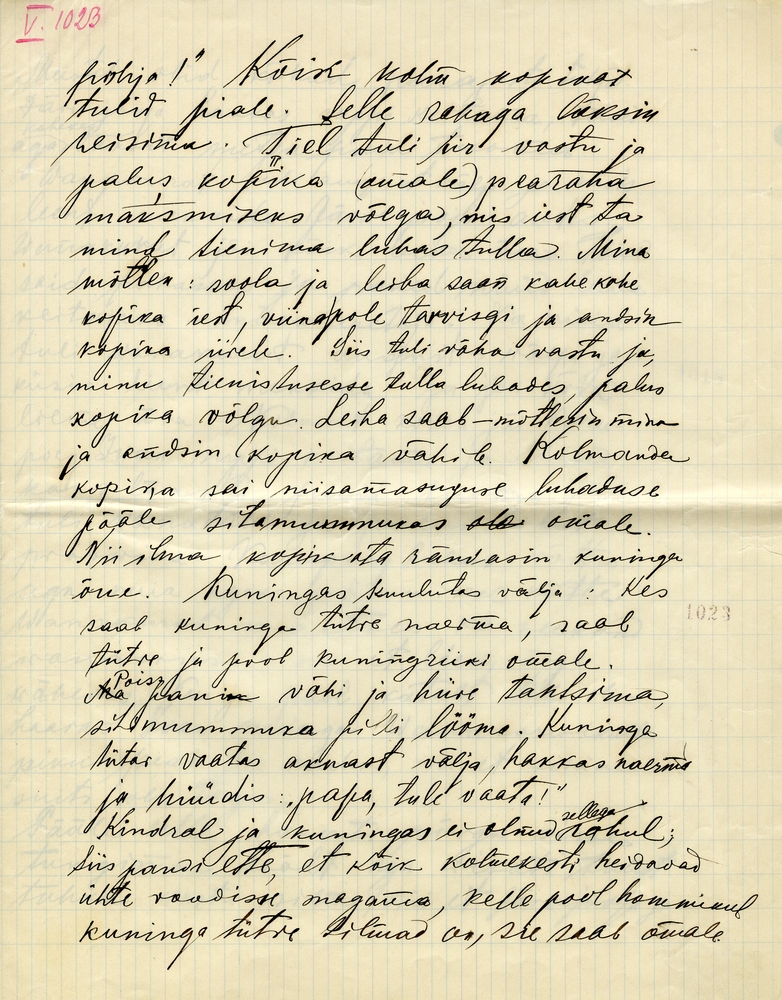 V. 1023
põhja!" Kõik kolm kopikat
tulid piale. Selle rahaga läksin
reisima. Tiel tuli iir vastu ja
palus kopika (omale) pearaha
maksmiseks võlga, mis iest ta
mind tienima lubas tulla. Mina
mõtlen: soola ja leiba saan kahe kohe
kopika iest, viina pole tarvisgi ja andsin
kopika iirele. Siis tuli vähä vastu ja,
minu tienistusesse tulla lubades, palus
kopika võlgu. Leiba saab – mõtlesin mina
ja andsin kopika vähile. Kolmanda
kopika sai niisamasuguse lubaduse
pääle sitamummukas omale.
Nii ilma kopikata rändasin kuninga
õue. Kuningas kuulutas välja: Kes
saab kuninga tütre naerma, saab
1023
tütre ja pool kuningriiki omale.
Poisz
panin vähi ja hiire tantsima,
sitamummuka pilli lööma. Kuninga
tütar vaatas aknast välja, hakkas naerma
ja hüüdis: „papa, tule vaata!"
sellega
Kindral ja kuningas ei olnud rahul;
siis pandi ette, et kõik kolmekesti heidavad
ühte voodisse magama, kelle pool hommikul
kuninga tütre silmad on, see saab omale